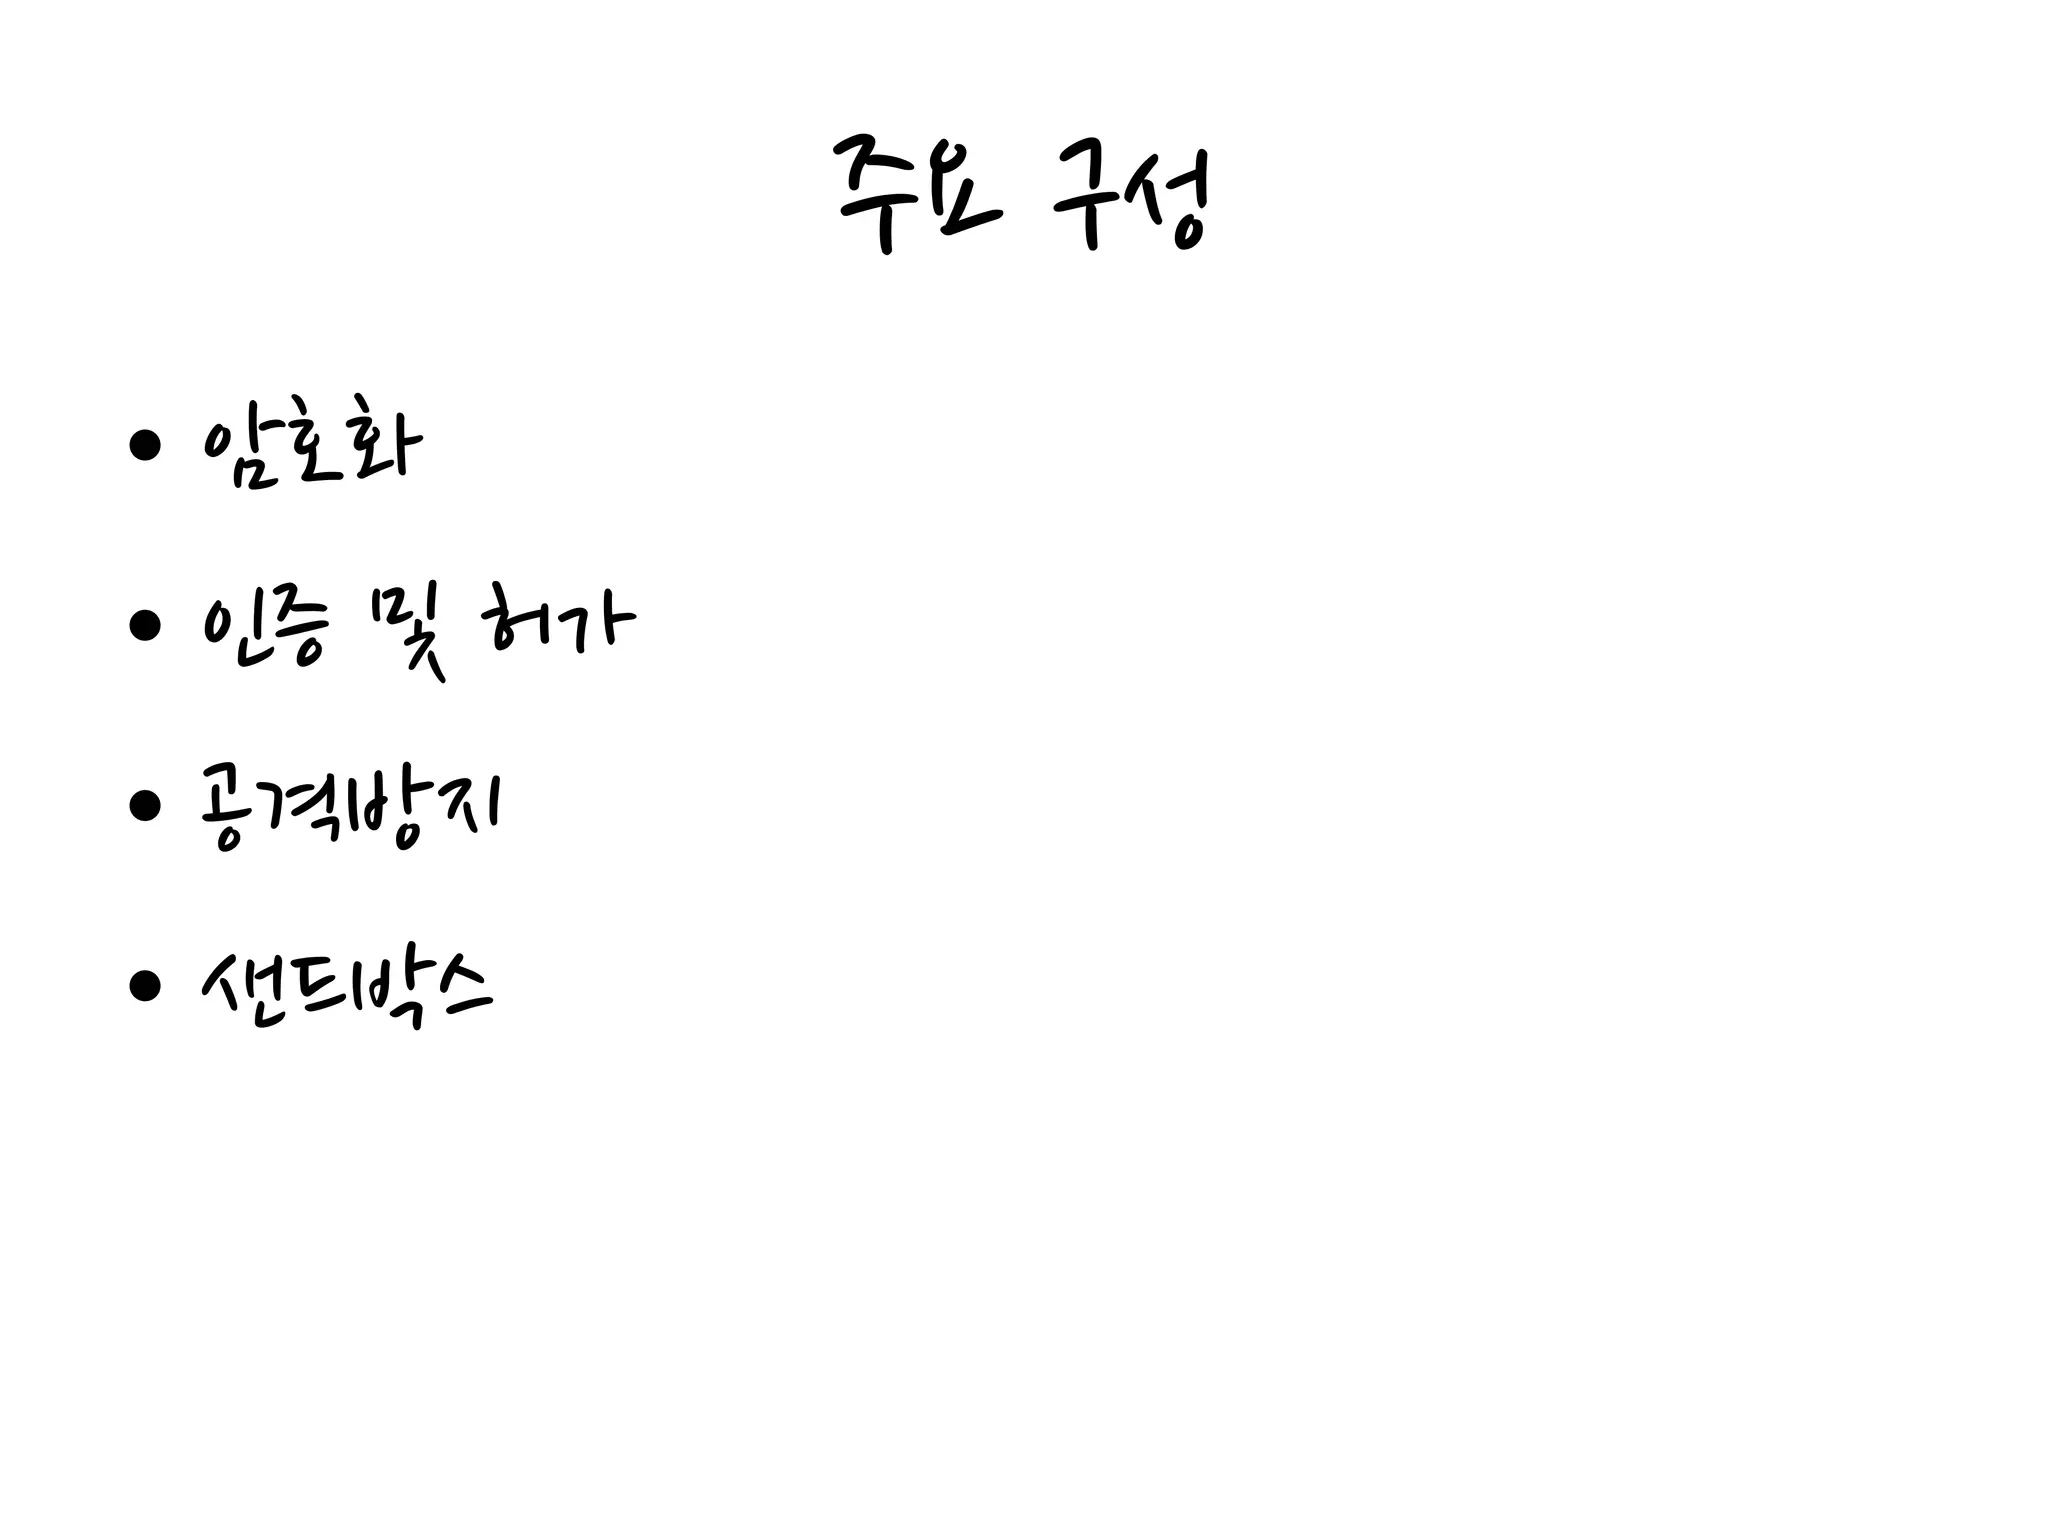 주요 구성
• 암호화
• 인증 및 허가
• 공격방지
• 샌드박스